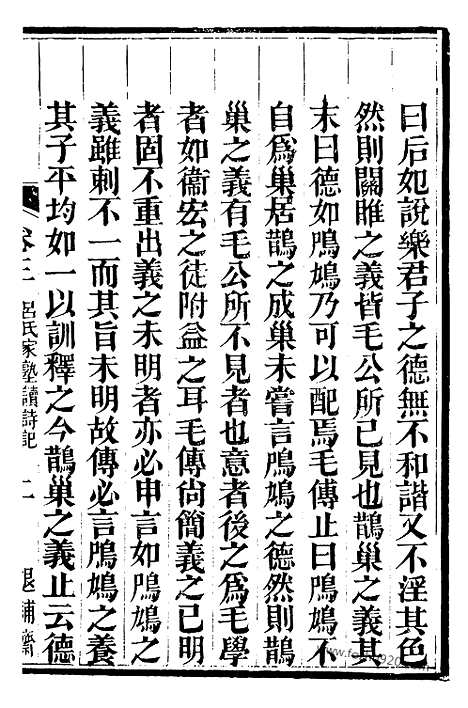 曰后妃說樂君子之德無不和諧又不淫其色
然則關雎之義皆毛公所已見也鵲巢之義其
末曰德如鳲鳩乃可以配焉毛傳止曰鳲鳩不
自爲巢居鵲之成巢未嘗言鳲鳩之德然則鵲
巢之義有毛公所不見者也意者後之爲毛學
者如衞宏之徒附益之耳毛傳尙簡義之已明
者固不重出義之未明者亦必申言如鳲鳩之
義雖刺不一而其旨未明故傳必言鳲鳩之養
其子平均如一以訓釋之今鵲巢之義止云德
卷三 呂氏家塾讀詩記 二 退補齋